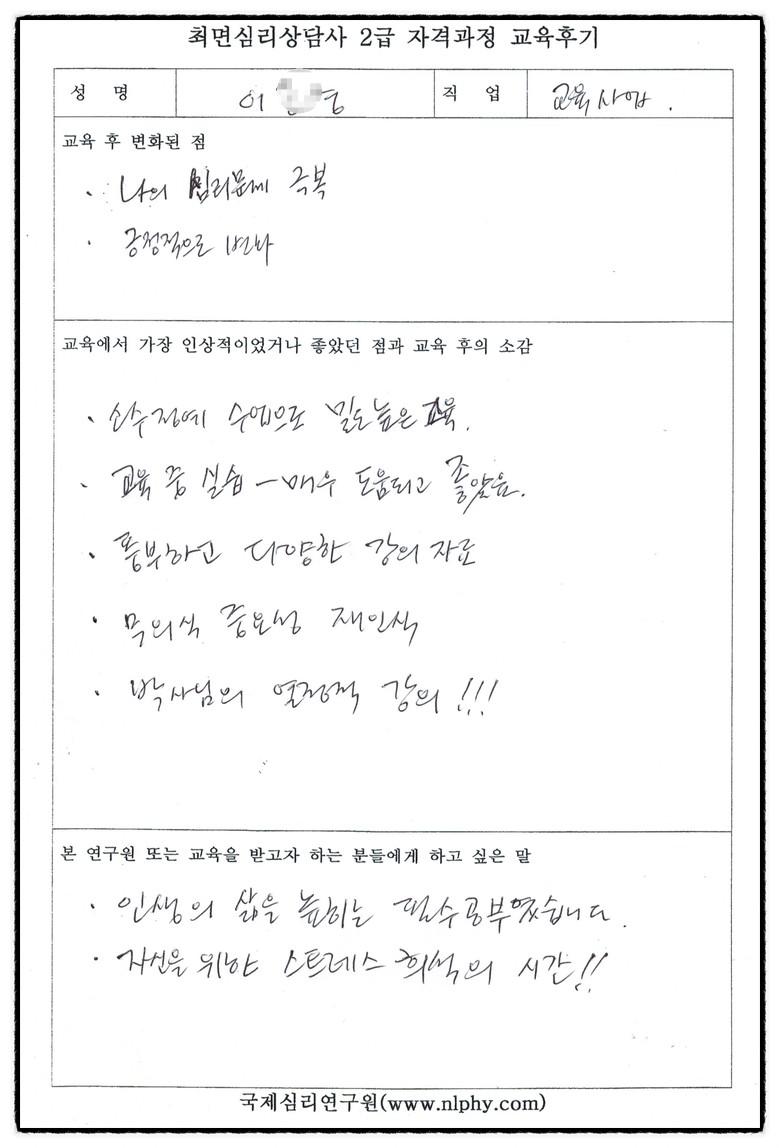 최면심리상담사 2급 자격과정 교육후기
성 명 이 영 직 업 교육사업.
교육 후 변화된 점
· 나의 심리문제 극복
· 긍정적으로 변화
교육에서 가장 인상적이었거나 좋았던 점과 교육 후의 소감
· 소수정예 수업으로 밀도높은 교육.
· 교육 중 실습 - 매우 도움되고 좋았음.
· 풍부하고 다양한 강의 자료
· 무의식 중요성 재인식
· 박사님의 열정적 강의 !!!
본 연구원 또는 교육을 받고자 하는 분들에게 하고 싶은 말
· 인생의 삶을 높히는 필수공부였습니다.
· 자신을 위한 스트레스 의 시간!!
국제심리연구원(www.nlphy.com)